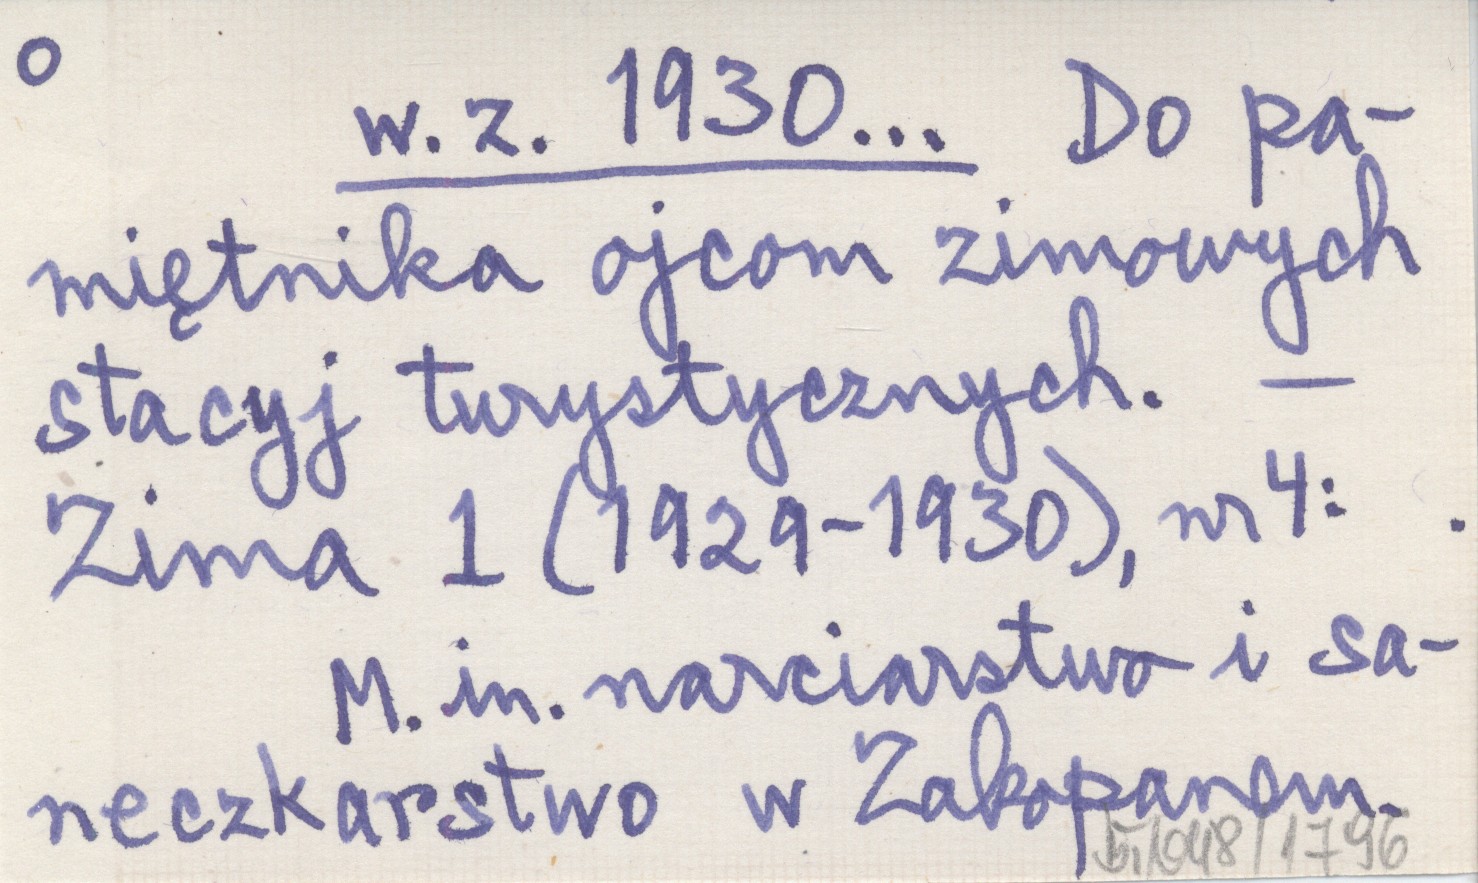 o
w. z. 1930... Do pa-
miętnika ojcom zimowych
stacyj turystycznych. —
Zima 1 (1929-1930), nr 4: .
M. in. narciarstwo i sa-
neczkarstwo w Zakopanem.
/1796